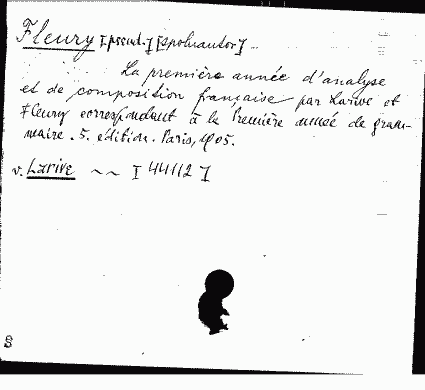 Fleury [pseud.] [spoluautor] ..
La première année d'analyse
et de composition française par Larive et
Fleury correspondant à la Première année de gram-
maire. 5. édition. Paris, 1905.
v. Larive ~ ~ [44112]